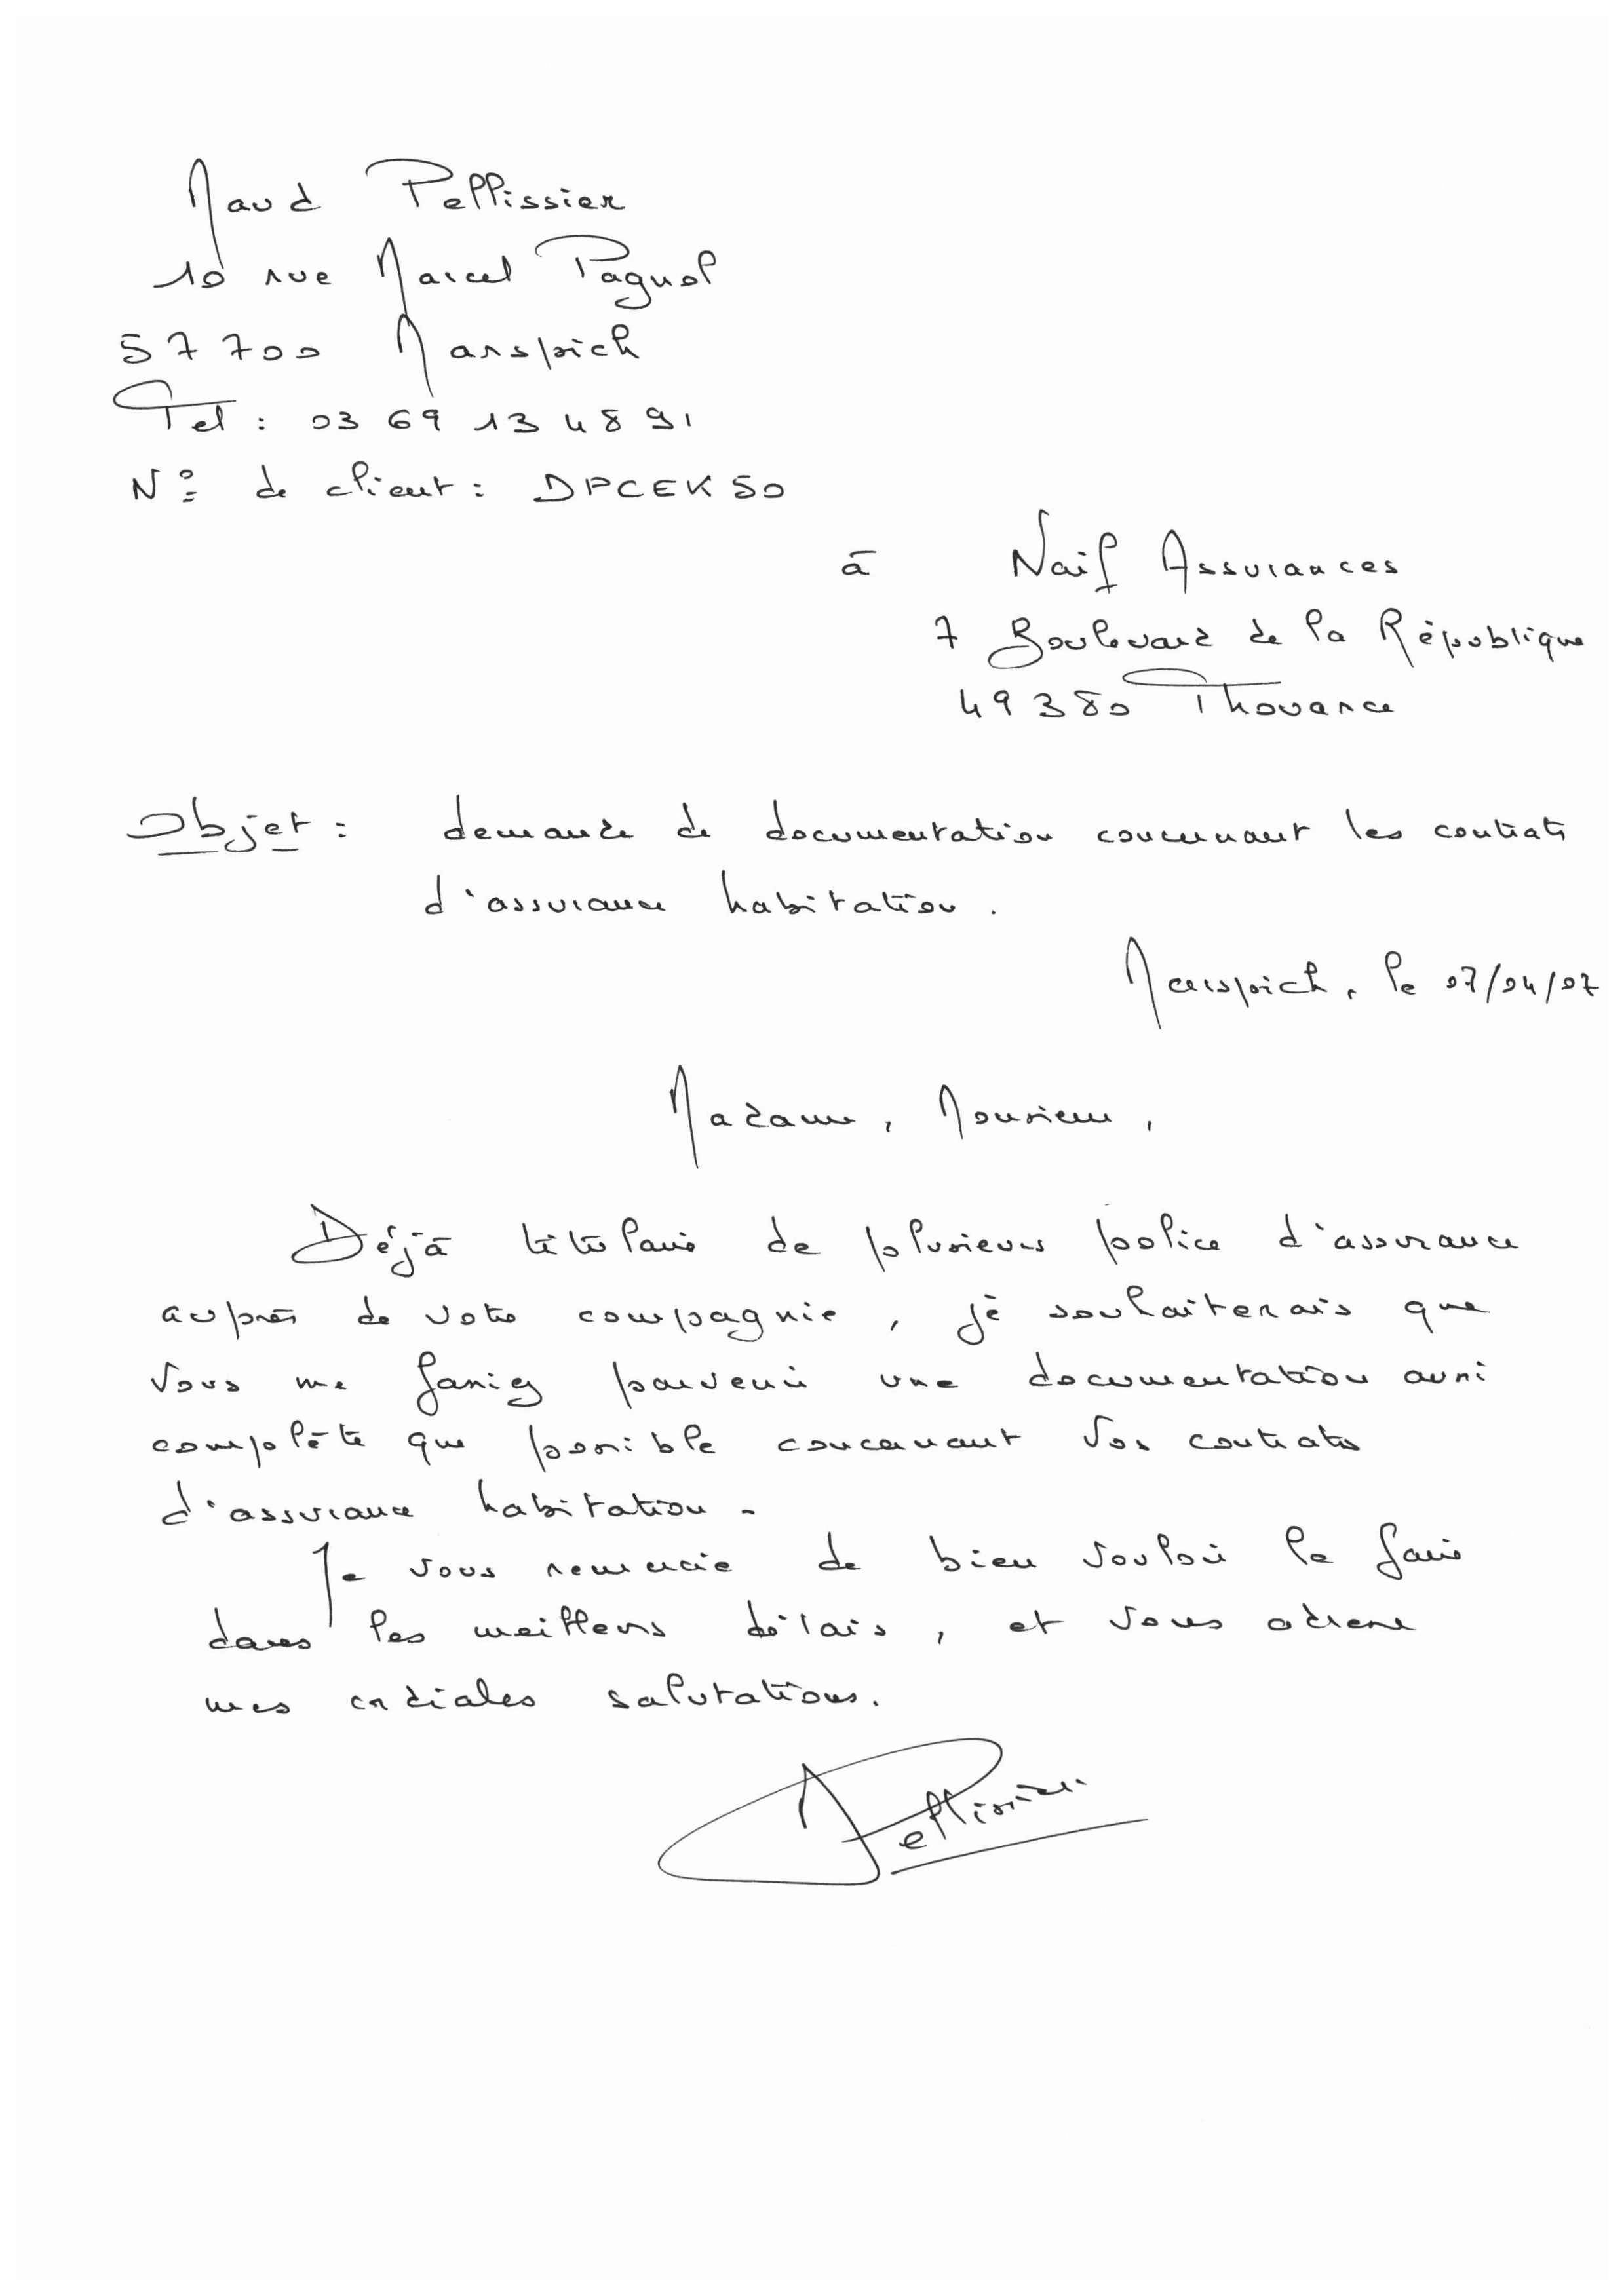 Maud Pellissier
10 rue Marcel Pagnol
57700 Marspich
Tel : 03 69 13 48 91
N° de client : DPCEK50
à Naif Assurances
7 Boulevard de la République
49380 Thouarce
Objet : demande de documentation concernant les contrats
d'assurance habitation.
Marspich, le 07/04/07
Madame, Monsieur,
Déjà titulaire de plusieurs police d'assurance
auprès de votre compagnie, je souhaiterais que
vous me fassiez parvenir une documentation aussi
complète que possible concernant vos contrats
d'assurance habitation.
Je vous remercie de bien vouloir le faire
dans les meilleurs délais, et vous adresse
mes cordiales salutations.
Pellissier